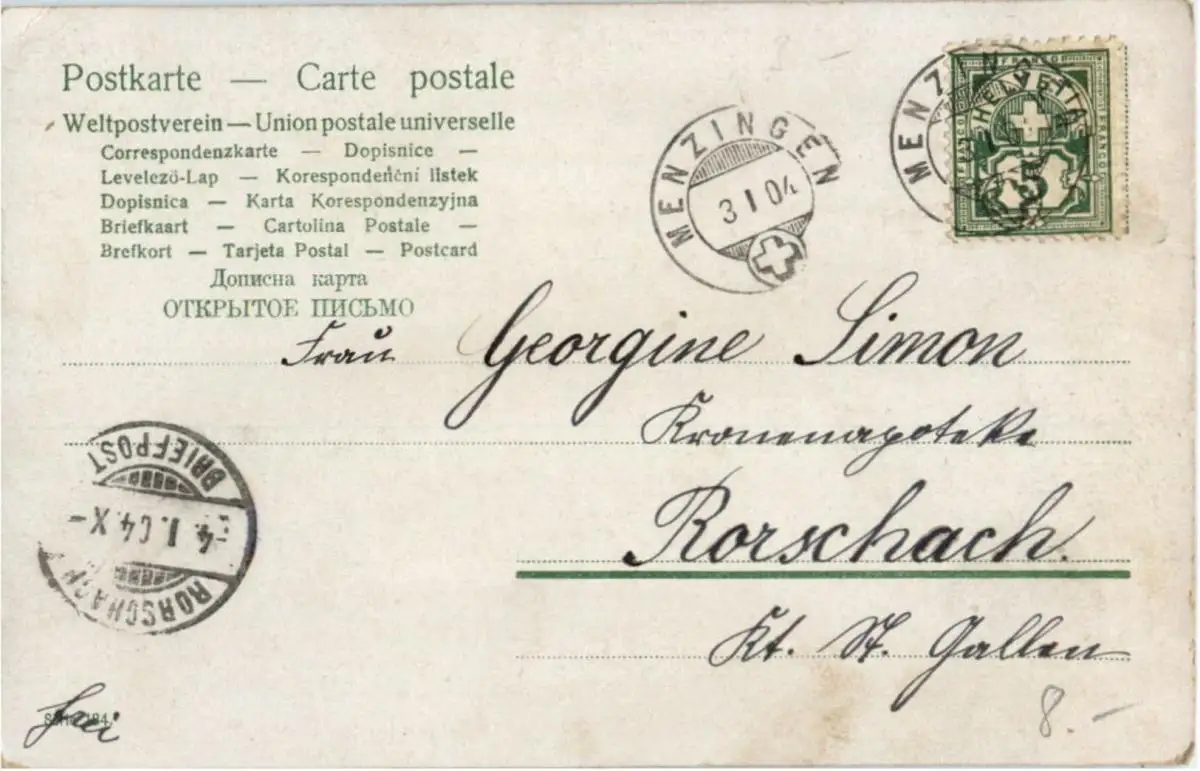 Postkarte — Carte postale
Weltpostverein — Union postale universelle
Correspondenzkarte — Dopisnice —
Levelező-Lap — Korespondenční listek
Dopisnica — Karta Korespondenzyjna
Briefkaart — Cartolina Postale —
Brefkort — Tarjeta Postal — Postcard
Дописна карта
ОТКРЫТОЕ ПИСЬМО
MENZINGEN
3 I 04
MENZIN
HELVETIA
5
Frau Georgine Simon
Kronenapoteke
Rorschach.
Kt. St. Gallen
BRIEFPOST
4. I. 04. X-
RORSCHACH
8.-